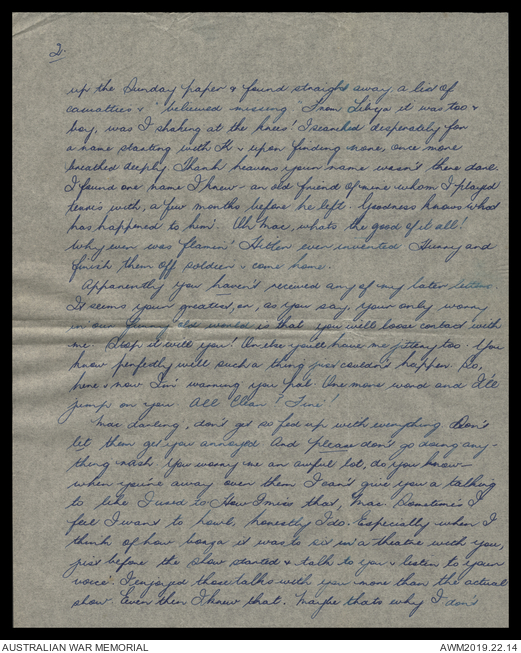 2.
up the Sunday paper & found straight away a list of
casualties & "believed missing" From Libya it was too &
boy, was I shaking at the knees! I searched desperately for
a name starting with K & upon finding none, once more
breathed deeply. Thank heavens your name wasn't there dare.
I found one name I knew - an old friend of mine whom I played
tennis with, a few months before he left. Goodness knows what
has happened to him. Oh Mac, whats the good of it all!
Why ever was flamen' Hitler ever invented Hurry and
finish them off soldier & come home.
Apparently you haven't received any of my later letters.
It seems your greatest, or, as you say, your only worry
in our funny old world is that you will loose contact with
me. Stop it will you! Or else you'll have me jittery too. You
know perfectly well such a thing just couldn't happen. So,
here & now I'm warning you pal. One more word and I'll
jump on you. All Clear? Fine!
Mac darling, don't get so fed up with everything. Don't
let them get you annoyed. And please don't go doing any-
thing rash. You worry me an awful lot, do you know -
when you're away over there I can't give you a talking
to like I used to. How I miss that, Mac. Sometimes I
feel I want to howl, honestly I do. Especially when I
think of how bonza it was to sit in a theatre with you,
just before the show started & talk to you & listen to your
voice. I enjoyed those talks with you more than the actual
show. Even then I knew that. Maybe thats why I don't
AUSTRALIAN WAR MEMORIAL
AWM2019.22.14